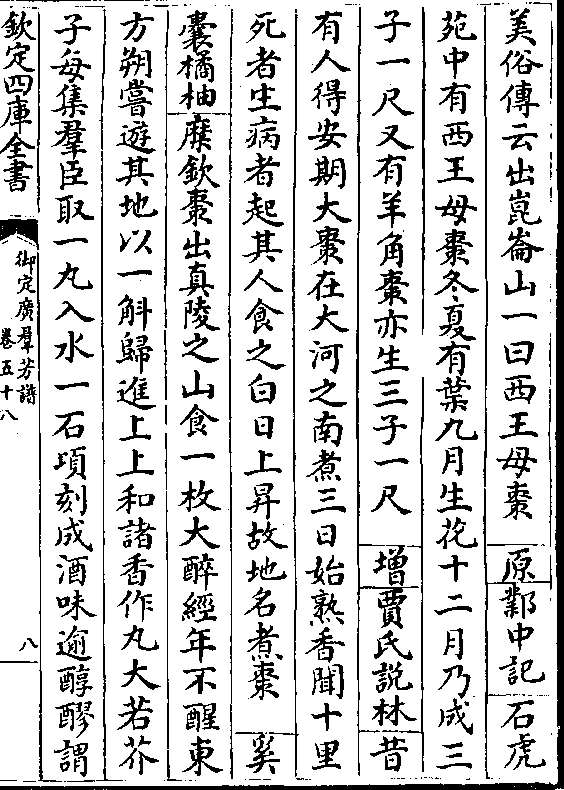 美俗傳云出崑崙山一曰西王母棗　原鄴中記石虎
苑中有西王母棗冬夏有葉九月生花十二月乃成三
子一尺又有羊角棗亦生三子一尺　增賈氏說林昔
有人得安期大棗在大河之南煮三日始熟香聞十里
死者生病者起其人食之白日上昇故地名煮棗　奚
囊橘柚㢤欽棗出真陵之山食一枚大醉經年不醒東
方朔嘗遊其地以一斛歸進上上和諸香作丸大若芥
子每集羣臣取一丸入水一石頃刻成酒味逾醇醪謂
欽定四庫全書
御定廣羣芳譜
卷五十八
八